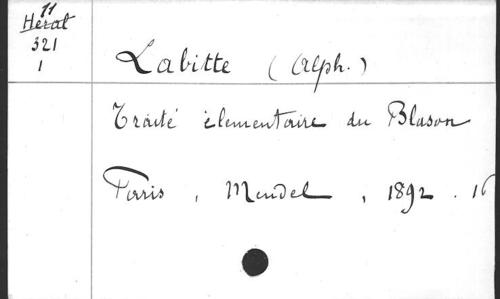 11
Herat
321
1
Labitte (Alph.)
Traité élementaire du Blason
Paris, Mendel, 1892. 16